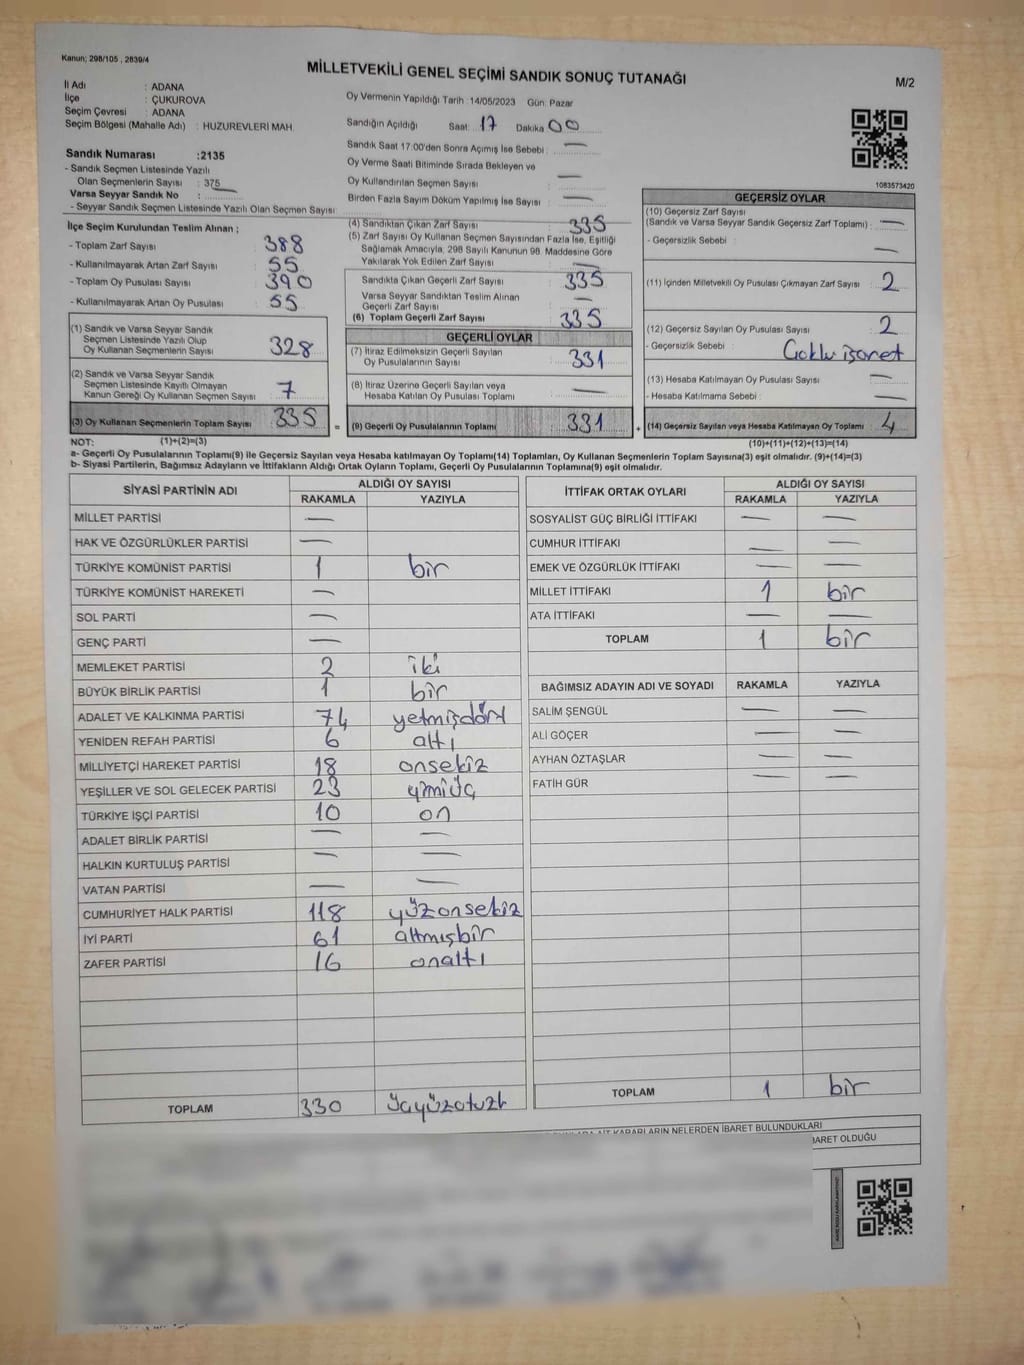 Kanun; 298/105 , 2839/4
MİLLETVEKİLİ GENEL SEÇİMİ SANDIK SONUÇ TUTANAĞI
M/2
İl Adı : ADANA
İlçe : ÇUKUROVA
Seçim Çevresi : ADANA
Seçim Bölgesi (Mahalle Adı) : HUZUREVLERİ MAH.
Sandık Numarası :2135
- Sandık Seçmen Listesinde Yazılı
Olan Seçmenlerin Sayısı : 375
Varsa Seyyar Sandık No :
- Seyyar Sandık Seçmen Listesinde Yazılı Olan Seçmen Sayısı :
Oy Vermenin Yapıldığı Tarih :14/05/2023 Gün: Pazar
Sandığın Açıldığı Saat: 17 Dakika 00
Sandık Saat 17.00'den Sonra Açımış İse Sebebi : —
Oy Verme Saati Bitiminde Sırada Bekleyen ve
Oy Kullandırılan Seçmen Sayısı : —
Birden Fazla Sayım Döküm Yapılmış İse Sayısı : —
1083573420
İlçe Seçim Kurulundan Teslim Alınan ;
- Toplam Zarf Sayısı : 388
- Kullanılmayarak Artan Zarf Sayısı : 55
- Toplam Oy Pusulası Sayısı : 390
- Kullanılmayarak Artan Oy Pusulası : 55
(1) Sandık ve Varsa Seyyar Sandık
Seçmen Listesinde Yazılı Olup
Oy Kullanan Seçmenlerin Sayısı : 328
(2) Sandık ve Varsa Seyyar Sandık
Seçmen Listesinde Kayıtlı Olmayan
Kanun Gereği Oy Kullanan Seçmen Sayısı : 7
(3) Oy Kullanan Seçmenlerin Toplam Sayısı : 335
(4) Sandıktan Çıkan Zarf Sayısı : 335
(5) Zarf Sayısı Oy Kullanan Seçmen Sayısından Fazla İse, Eşitliği
Sağlamak Amacıyla, 298 Sayılı Kanunun 98. Maddesine Göre
Yakılarak Yok Edilen Zarf Sayısı : —
Sandıkta Çıkan Geçerli Zarf Sayısı : 335
Varsa Seyyar Sandıktan Teslim Alınan
Geçerli Zarf Sayısı : —
(6) Toplam Geçerli Zarf Sayısı : 335
GEÇERLİ OYLAR
(7) İtiraz Edilmeksizin Geçerli Sayılan
Oy Pusulalarının Sayısı : 331
(8) İtiraz Üzerine Geçerli Sayılan veya
Hesaba Katılan Oy Pusulası Toplamı : —
= (9) Geçerli Oy Pusulalarının Toplamı : 331
GEÇERSİZ OYLAR
(10) Geçersiz Zarf Sayısı
(Sandık ve Varsa Seyyar Sandık Geçersiz Zarf Toplamı) : —
- Geçersizlik Sebebi : —
(11) İçinden Milletvekili Oy Pusulası Çıkmayan Zarf Sayısı : 2
(12) Geçersiz Sayılan Oy Pusulası Sayısı : 2
- Geçersizlik Sebebi : Çoklu işaret
(13) Hesaba Katılmayan Oy Pusulası Sayısı : —
- Hesaba Katılmama Sebebi : —
+ (14) Geçersiz Sayılan veya Hesaba Katılmayan Oy Toplamı : 4
NOT: (1)+(2)=(3) (10)+(11)+(12)+(13)=(14)
a- Geçerli Oy Pusulalarının Toplamı(9) ile Geçersiz Sayılan veya Hesaba katılmayan Oy Toplamı(14) Toplamları, Oy Kullanan Seçmenlerin Toplam Sayısına(3) eşit olmalıdır. (9)+(14)=(3)
b- Siyasi Partilerin, Bağımsız Adayların ve İttifakların Aldığı Ortak Oyların Toplamı, Geçerli Oy Pusulalarının Toplamına(9) eşit olmalıdır.
SİYASİ PARTİNİN ADI ALDIĞI OY SAYISI
RAKAMLA YAZIYLA
MİLLET PARTİSİ —
HAK VE ÖZGÜRLÜKLER PARTİSİ —
TÜRKİYE KOMÜNİST PARTİSİ 1 bir
TÜRKİYE KOMÜNİST HAREKETİ —
SOL PARTİ —
GENÇ PARTİ —
MEMLEKET PARTİSİ 2 iki
BÜYÜK BİRLİK PARTİSİ 1 bir
ADALET VE KALKINMA PARTİSİ 74 yetmişdört
YENİDEN REFAH PARTİSİ 6 altı
MİLLİYETÇİ HAREKET PARTİSİ 18 onsekiz
YEŞİLLER VE SOL GELECEK PARTİSİ 23 yirmiüç
TÜRKİYE İŞÇİ PARTİSİ 10 on
ADALET BİRLİK PARTİSİ — —
HALKIN KURTULUŞ PARTİSİ — —
VATAN PARTİSİ — —
CUMHURİYET HALK PARTİSİ 118 yüzonsekiz
İYİ PARTİ 61 altmışbir
ZAFER PARTİSİ 16 onaltı
TOPLAM 330 üçyüzotuz
İTTİFAK ORTAK OYLARI ALDIĞI OY SAYISI
RAKAMLA YAZIYLA
SOSYALİST GÜÇ BİRLİĞİ İTTİFAKI — —
CUMHUR İTTİFAKI — —
EMEK VE ÖZGÜRLÜK İTTİFAKI — —
MİLLET İTTİFAKI 1 bir
ATA İTTİFAKI — —
TOPLAM 1 bir
BAĞIMSIZ ADAYIN ADI VE SOYADI RAKAMLA YAZIYLA
SALİM ŞENGÜL — —
ALİ GÖÇER — —
AYHAN ÖZTAŞLAR — —
FATİH GÜR — —
TOPLAM 1 bir
AİT KARARLARIN NELERDEN İBARET BULUNDUKLARI
İBARET OLDUĞU